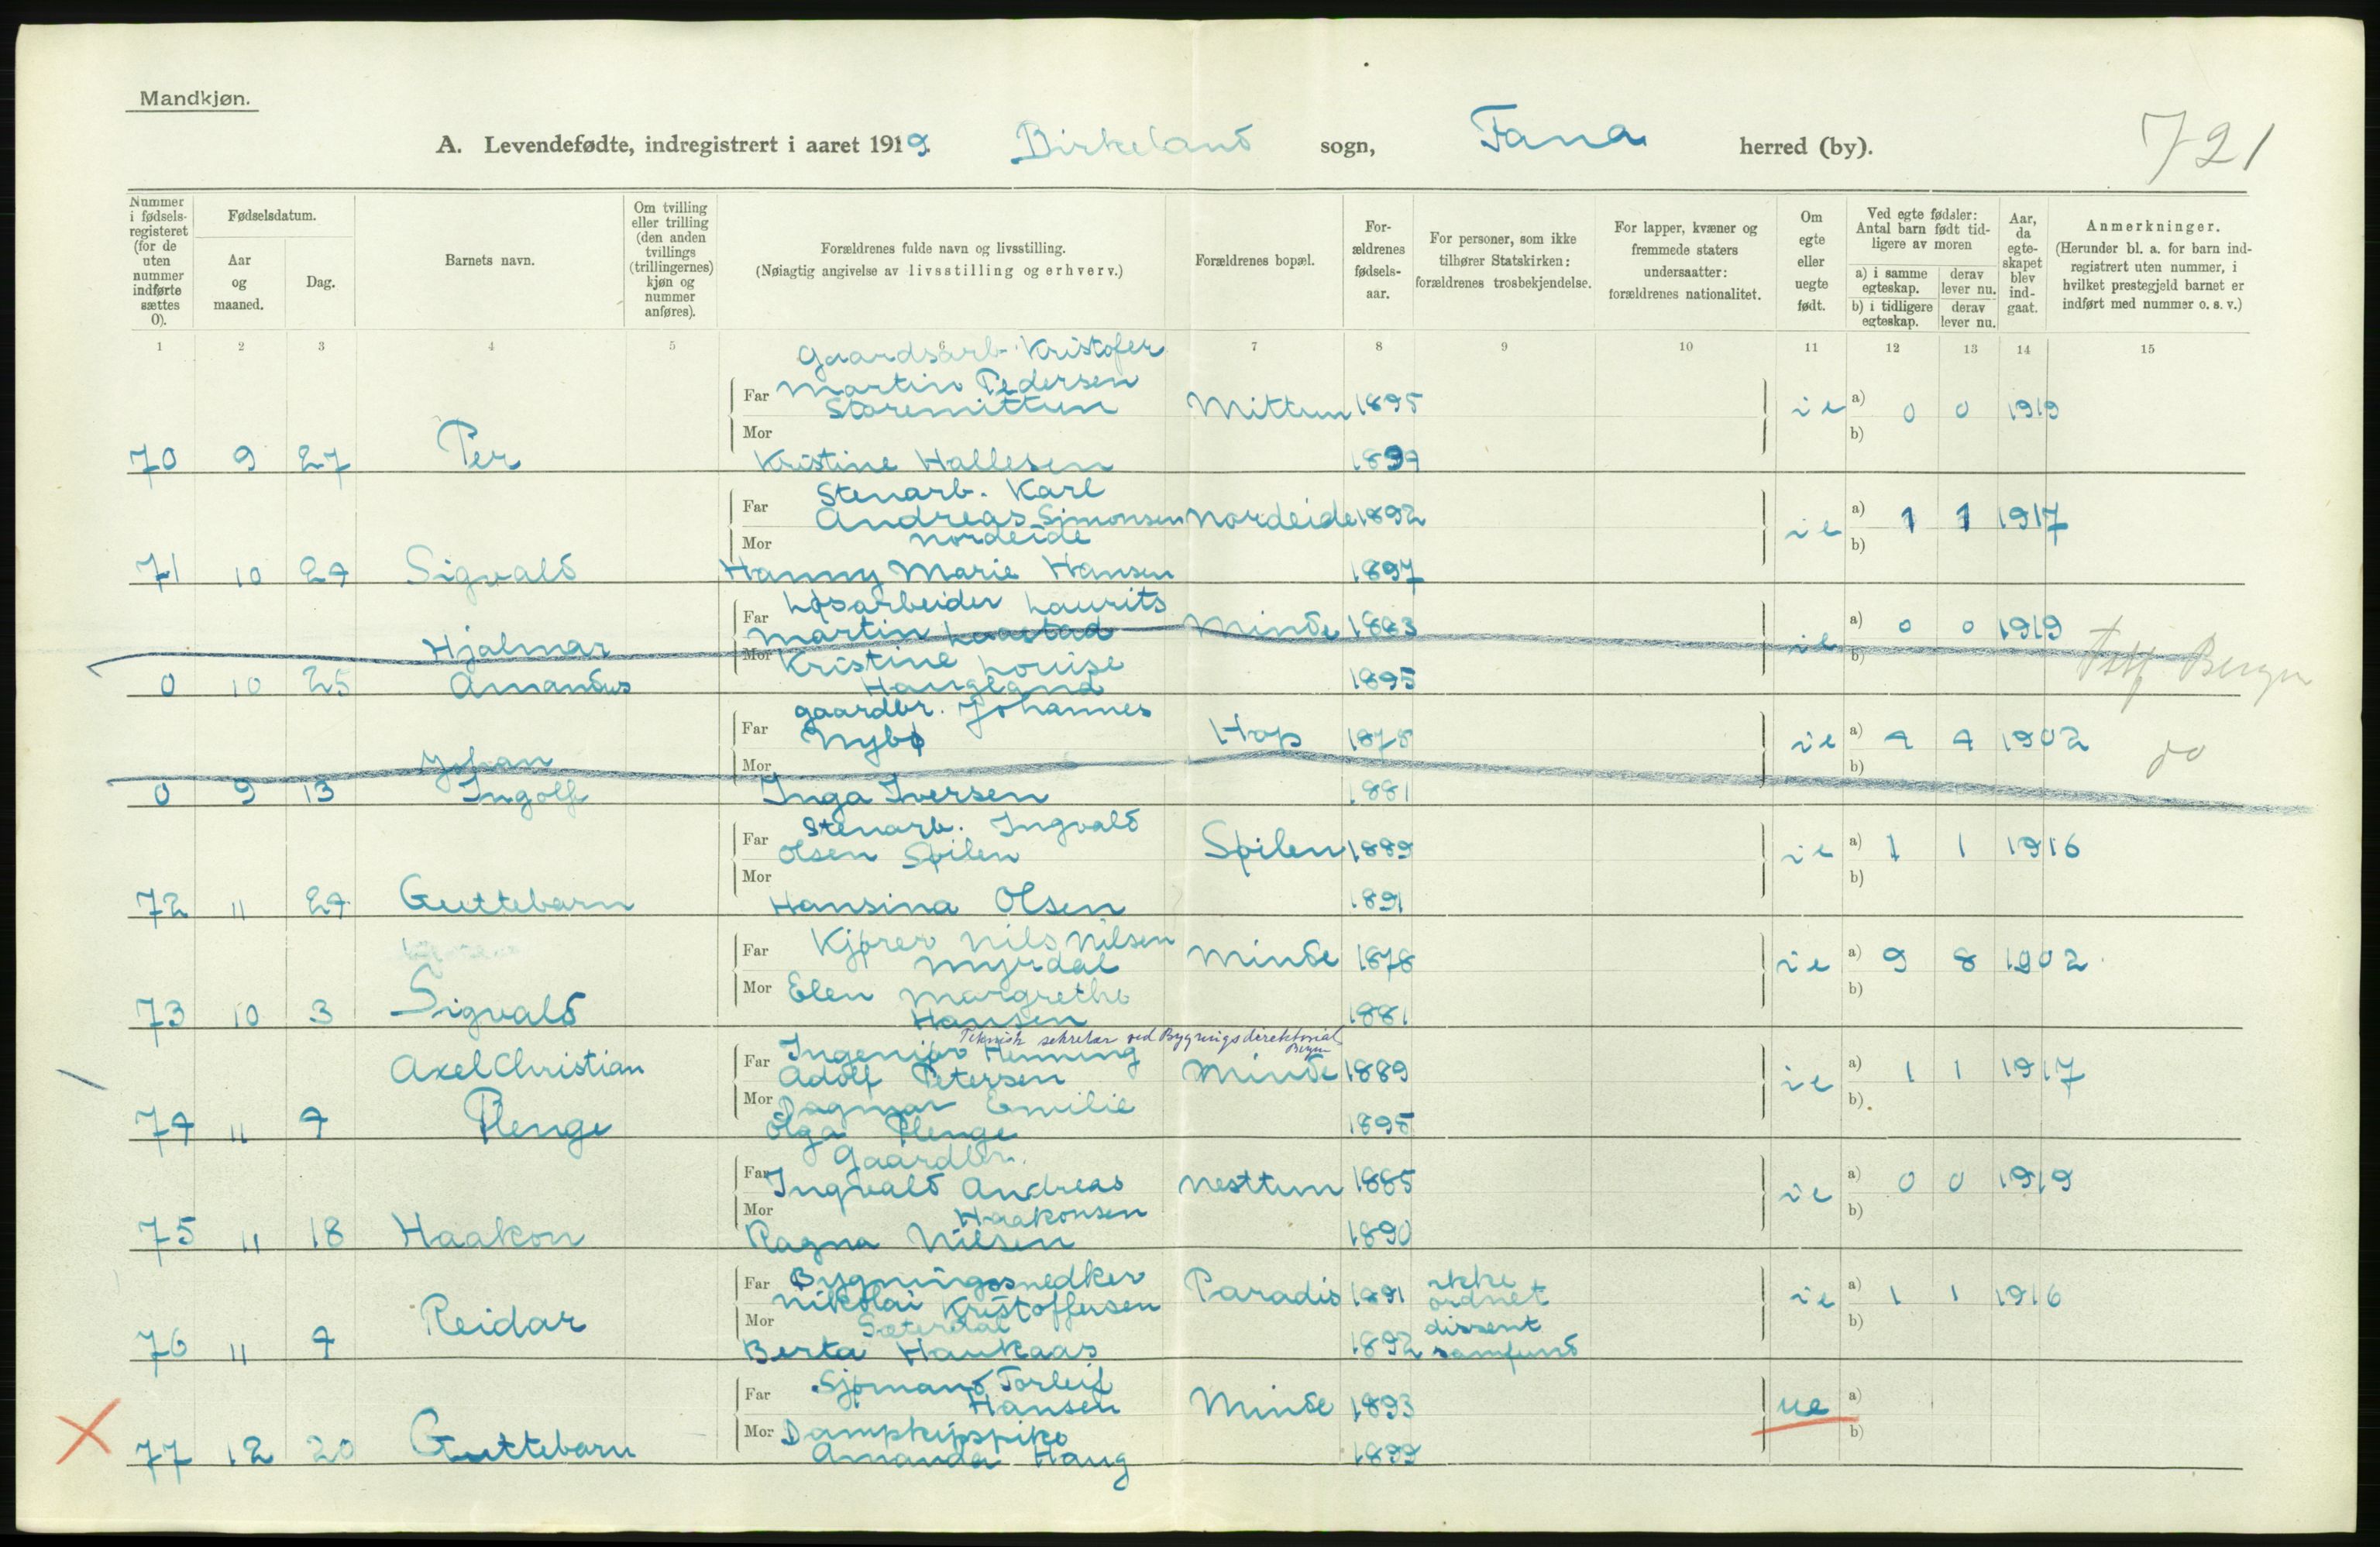 Mandkjøn.
A. Levendefødte, indregistrert i aaret 1919. Birkeland sogn, Fana herred (by). 721
Nummer i fødsels-registeret (for de uten nummer indførte sættes 0).
Fødselsdatum.
Aar og maaned.
Dag.
Barnets navn.
Om tvilling eller trilling (den anden tvillings (trillingernes) kjøn og nummer anføres).
Forældrenes fulde navn og livsstilling.
(Nøiagtig angivelse av livsstilling og erhverv.)
Forældrenes bopæl.
For-ældrenes fødsels-aar.
For personer, som ikke tilhører Statskirken: forældrenes trosbekjendelse.
For lapper, kvæner og fremmede staters undersaatter: forældrenes nationalitet.
Om egte eller uegte født.
Ved egte fødsler: Antal barn født tid-ligere av moren
a) i samme egteskap. derav lever nu.
b) i tidligere egteskap. derav lever nu.
Aar, da egte-skapet blev ind-gaat.
Anmerkninger.
(Herunder bl. a. for barn ind-registrert uten nummer, i hvilket prestegjeld barnet er indført med nummer o. s. v.)
1 2 3 4 5 6 7 8 9 10 11 12 13 14 15
Gaardsarb. Kristofer
Far Martin Pedersen
Storemittun Mittun 1895 ie a) 0 0 1919
Mor b)
70 9 27 Per Kristine Hallesen 1899
Stenarb. Karl
Far Andreas Simonsen Nordeide 1892 ie a) 1 1 1917
Mor Nordeide b)
71 10 24 Sigvald Hanny Marie Hansen 1897
Far Løsarbeider Laurits
Hjalmar Martin Laastad Minde 1883 ie a) 0 0 1919
Mor Kristine Louise b) Bergen
0 10 25 Amandus Haugland 1895
Gaardbr. Johannes
Far Nybø Hop 1878 ie a) 4 4 1902 do
Johan Mor b)
0 9 13 Ingolf Inga Iversen 1881
Stenarb. Ingvald
Far Olsen Spilen Spilen 1889 ie a) 1 1 1916
Mor b)
72 11 24 Guttebarn Hansina Olsen 1891
Far Kjører Nils Nilsen
Myrdal Minde 1878 ie a) 9 8 1902
Mor Elen Margrethe b)
73 10 3 Sigvald Hansen 1881
Teknisk sekretær ved Bygningsdirektorial Bergen
Far Ingeniør Henning
Axel Christian Adolf Petersen Minde 1889 ie a) 1 1 1917
Mor Dagmar Emilie b)
74 11 4 Plenge Olga Plenge 1895
Gaardbr.
Far Ingvald Andreas Nesttun 1885 ie a) 0 0 1919
Mor Haakonsen b)
75 11 18 Haakon Ragna Nilsen 1890
Far Bygningssnedker
Nikolai Kristoffersen Paradis 1891 ikke ordnet ie a) 1 1 1916
Mor Sæterdal dissent b)
76 11 4 Reidar Berta Haukaas 1892 samfund
Far Sjømand Torleif
Hansen Minde 1893 ue a)
Mor Dampkjøpike b)
77 12 20 Guttebarn Amanda Haug 1899